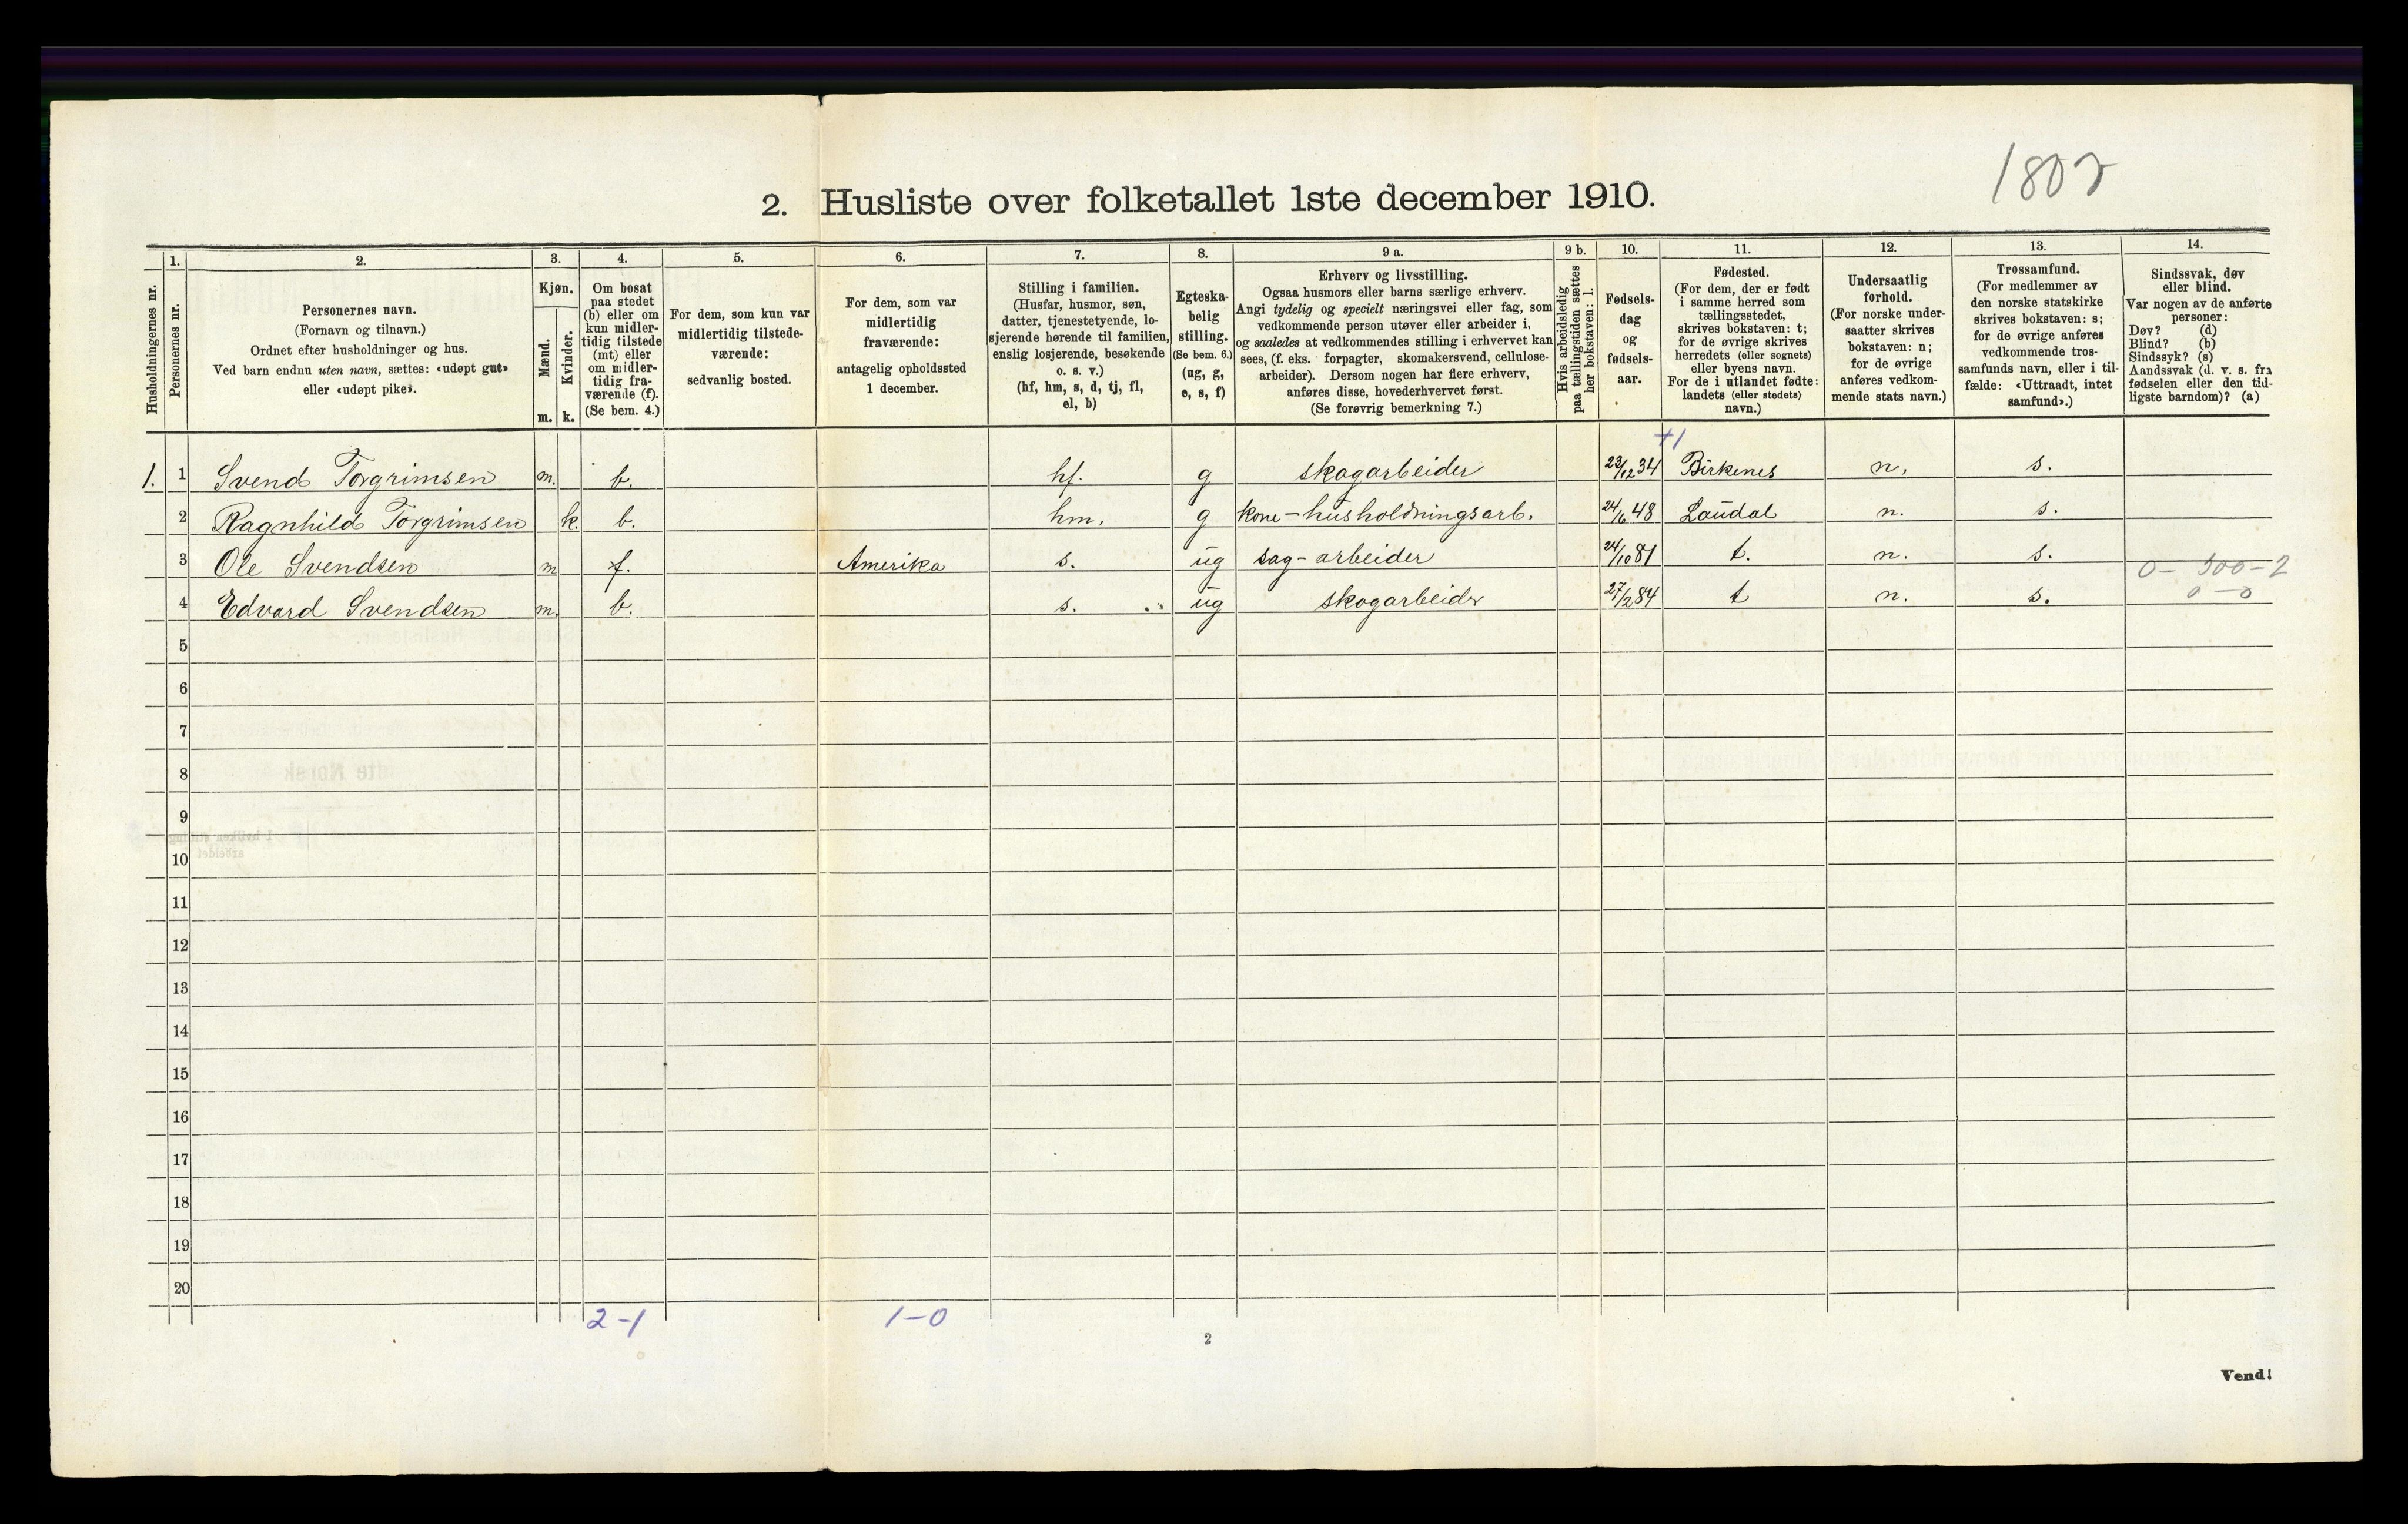 1802
2. Husliste over folketallet 1ste december 1910.
Husholdningernes nr.
1.
Personernes nr.
2.
Personernes navn.
(Fornavn og tilnavn.)
Ordnet efter husholdninger og hus.
Ved barn endnu uten navn, sættes: «udøpt gut»
eller «udøpt pike».
3.
Kjøn.
Mænd.
Kvinder.
m. k.
4.
Om bosat
paa stedet
(b) eller om
kun midler-
tidig tilstede
(mt) eller
om midler-
tidig fra-
værende (f).
(Se bem. 4.)
5.
For dem, som kun var
midlertidig tilstede-
værende:
sedvanlig bosted.
6.
For dem, som var
midlertidig
fraværende:
antagelig opholdssted
1 december.
7.
Stilling i familien.
(Husfar, husmor, søn,
datter, tjenestetyende, lo-
sjerende hørende til familien,
enslig losjerende, besøkende
o. s. v.)
(hf, hm, s, d, tj, fl,
el, b)
8.
Egteska-
belig
stilling.
(Se bem. 6.)
(ug, g,
e, s, f)
9 a.
Erhverv og livsstilling.
Ogsaa husmors eller barns særlige erhverv.
Angi tydelig og specielt næringsvei eller fag, som
vedkommende person utøver eller arbeider i,
og saaledes at vedkommendes stilling i erhvervet kan
sees, (f. eks. forpagter, skomakersvend, cellulose-
arbeider). Dersom nogen har flere erhverv,
anføres disse, hovederhvervet først.
(Se forøvrig bemerkning 7.)
9 b.
Hvis arbeidsledig
paa tællingstiden sættes
her bokstaven: l.
10.
Fødsels-
dag
og
fødsels-
aar.
11.
Fødested.
(For dem, der er født
i samme herred som
tællingsstedet,
skrives bokstaven: t;
for de øvrige skrives
herredets (eller sognets)
eller byens navn.
For de i utlandet fødte:
landets (eller stedets)
navn.)
12.
Undersaatlig
forhold.
(For norske under-
saatter skrives
bokstaven: n;
for de øvrige
anføres vedkom-
mende stats navn.)
13.
Trossamfund.
(For medlemmer av
den norske statskirke
skrives bokstaven: s;
for de øvrige anføres
vedkommende tros-
samfunds navn, eller i til-
fælde: «Uttraadt, intet
samfund».)
14.
Sindssvak, døv
eller blind.
Var nogen av de anførte
personer:
Døv? (d)
Blind? (b)
Sindssyk? (s)
Aandssvak (d. v. s. fra
fødselen eller den tid-
ligste barndom)? (a)
+1
1. 1 Svend Torgrimsen m. b. hf. g skogarbeider 23/12 34 Birkenes n. s.
2 Ragnhild Torgrimsen k. b. hm. g kone-husholdningsarb. 24/6 48 Laudal n. s.
3 Ole Svendsen m f. Amerika s. ug sag-arbeider 24/10 81 t. n. s.
0 - 500 - 2
4 Edvard Svendsen m. b. s. ug skogarbeider 27/2 84 t n. s. 0 - 0
5
6
7
8
9
10
11
12
13
14
15
16
17
18
19
20
2-1 1-0
2
Vend!